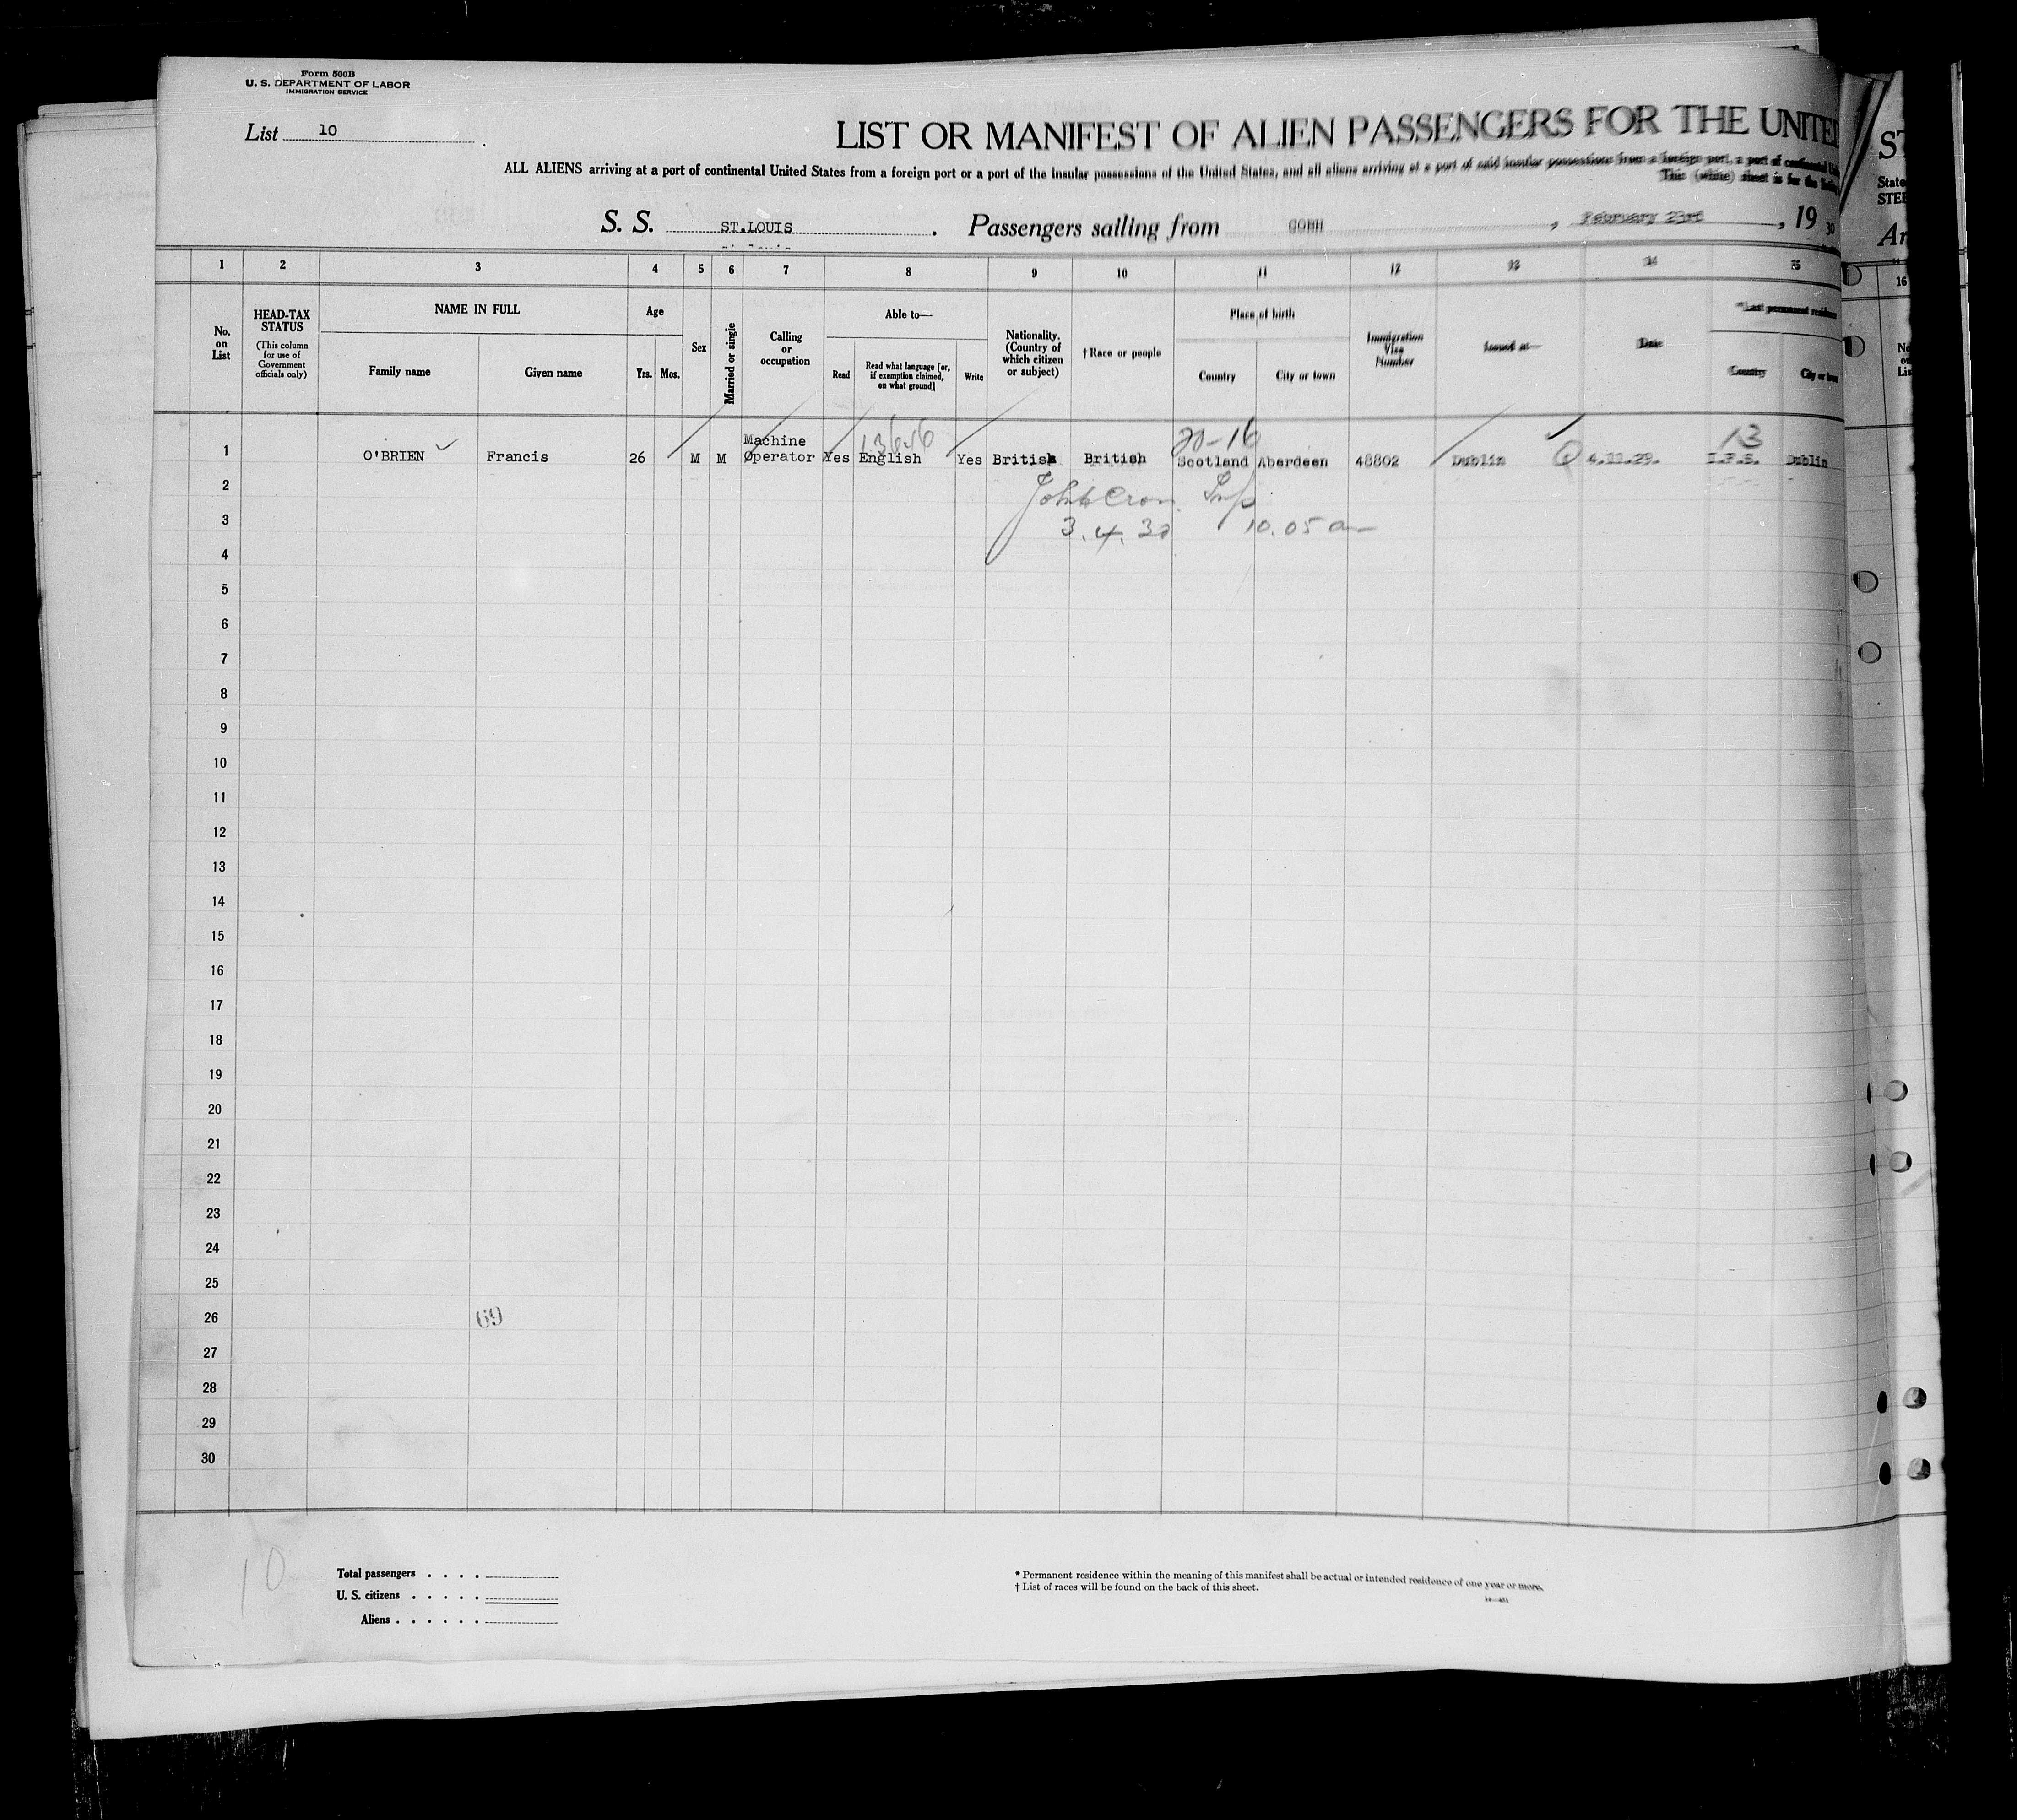 Form 500B
U. S. DEPARTMENT OF LABOR
IMMIGRATION SERVICE
List 10
LIST OR MANIFEST OF ALIEN PASSENGERS FOR THE UNITED
ALL ALIENS arriving at a port of continental United States from a foreign port or a port of the insular possessions of the United States, and all aliens arriving at a port of said insular possessions from a foreign port, a port of continental
This (white) sheet is for the
S. S. ST.LOUIS . Passengers sailing from COBH , February 23rd , 19 30
ST
State
STEE
Ar
1 2 3 4 5 6 7 8 9 10 11 12 13 14 15 16
No. on List
HEAD-TAX STATUS
(This column for use of Government officials only)
NAME IN FULL
Family name
Given name
Age
Yrs. Mos.
Sex
Married or single
Calling or occupation
Able to—
Read
Read what language [or, if exemption claimed, on what ground]
Write
Nationality. (Country of which citizen or subject)
†Race or people
Place of birth
Country
City or town
Immigration Visa Number
Issued at—
Date
*Last permanent residence
Country
City or town
20-16
13
1 O'BRIEN Francis 26 M M Machine Operator Yes English Yes British British Scotland Aberdeen 48802 Dublin 4.11.29. I.F.S. Dublin
2
3 3.4.30 10.05 am
4
5
6
7
8
9
10
11
12
13
14
15
16
17
18
19
20
21
22
23
24
25
26 69
27
28
29
30
10
Total passengers . . . .
U. S. citizens . . . . .
Aliens . . . . . .
* Permanent residence within the meaning of this manifest shall be actual or intended residence of one year or more.
† List of races will be found on the back of this sheet.